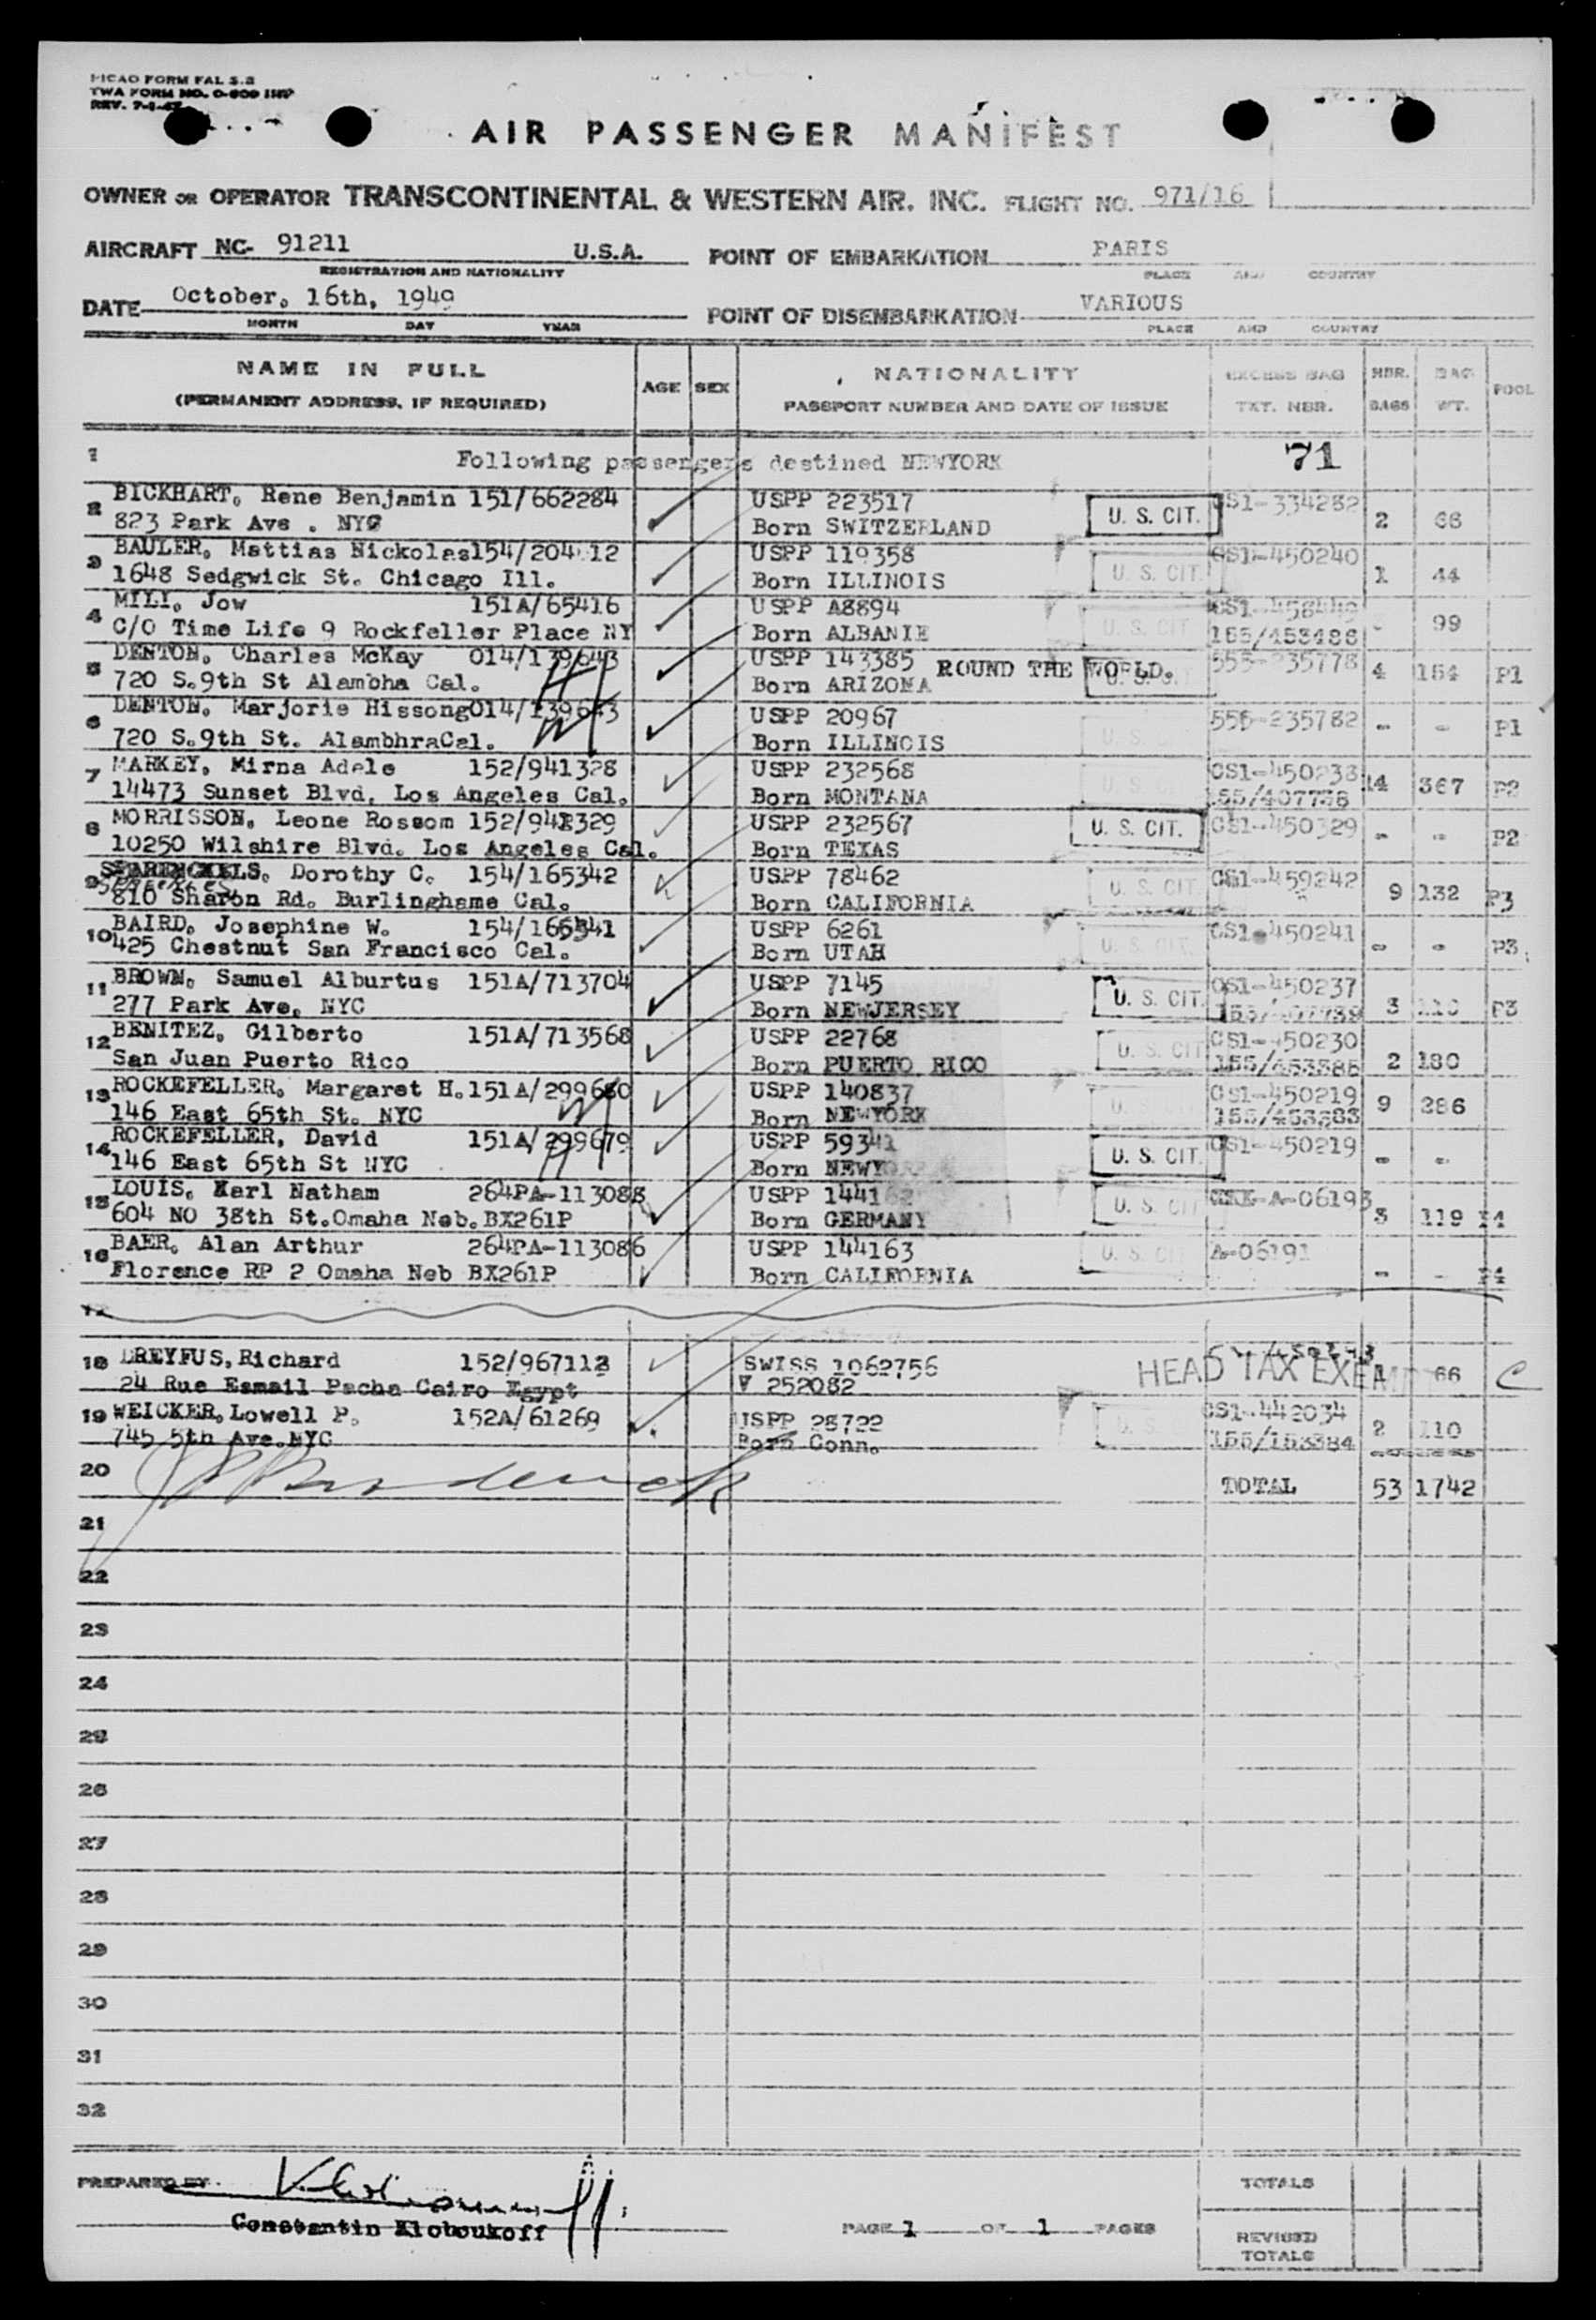 ICAO FORM FAL 3.2
TWA FORM NO. O-809 INP
REV. 7-1-47
AIR PASSENGER MANIFEST
OWNER OR OPERATOR TRANSCONTINENTAL & WESTERN AIR. INC. FLIGHT NO. 971/16
AIRCRAFT NC- 91211 U.S.A. POINT OF EMBARKATION PARIS
REGISTRATION AND NATIONALITY PLACE AND COUNTRY
DATE October, 16th, 1949 POINT OF DISEMBARKATION VARIOUS
MONTH DAY YEAR PLACE AND COUNTRY
NAME IN FULL AGE SEX NATIONALITY EXCESS BAG NBR. BAG POOL
(PERMANENT ADDRESS, IF REQUIRED) PASSPORT NUMBER AND DATE OF ISSUE TKT. NBR. BAGS WT.
1 Following passengers destined NEWYORK 71
2 BICKHART, Rene Benjamin 151/662284 USPP 223517 U. S. CIT. CS1-334282
823 Park Ave . NYC Born SWITZERLAND 2 66
3 BAULER, Mattias Nickolas 154/204 12 USPP 119358 U. S. CIT. CS1-450240
1648 Sedgwick St. Chicago Ill. Born ILLINOIS 1 44
4 MILI, Jow 151A/65416 USPP A8894 U. S. CIT
C/O Time Life 9 Rockfeller Place NY Born ALBANIE 155/453486 99
5 DENTON, Charles McKay 014/139643 USPP 143385 ROUND THE WORLD. 555-235778
720 S.9th St Alambha Cal. Born ARIZONA 4 154 P1
6 DENTON, Marjorie Hissong 014/139643 USPP 20967 U. S. 555-235782
720 S.9th St. AlambhraCal. Born ILLINOIS - - P1
7 MARKEY, Mirna Adele 152/941328 USPP 232568 U. S. CI CS1-450238
14473 Sunset Blvd, Los Angeles Cal. Born MONTANA 155/407738 14 367 P2
8 MORRISSON, Leone Rossom 152/941329 USPP 232567 U. S. CIT. CS1-450329
10250 Wilshire Blvd. Los Angeles Cal. Born TEXAS - - P2
9 Dorothy C. 154/165342 USPP 78462 U. S. CIT CS1-459242
810 Sharon Rd. Burlinghame Cal. Born CALIFORNIA 9 132 P3
10 BAIRD, Josephine W. 154/165341 USPP 6261 U. S. CIT CS1-450241
425 Chestnut San Francisco Cal. Born UTAH - - P3
11 BROWN, Samuel Alburtus 151A/713704 USPP 7145 U. S. CIT. CS1-450237
277 Park Ave, NYC Born NEWJERSEY 3 110 P3
12 BENITEZ, Gilberto 151A/713568 USPP 22768 U. S. CIT CS1-450230
San Juan Puerto Rico Born PUERTO RICO 155/453385 2 180
13 ROCKEFELLER, Margaret H. 151A/299680 USPP 140837 U. S. CS1-450219
146 East 65th St. NYC Born NEWYORK 155/453383 9 286
14 ROCKEFELLER, David 151A/299679 USPP 59341 U. S. CIT. CS1-450219
146 East 65th St NYC Born NEWYORK - -
15 LOUIS, Karl Natham 264PA-113088 USPP 144162 U. S. CIT A-06193
604 NO 38th St.Omaha Neb. BX261P Born GERMANY 3 119 P4
16 BAER, Alan Arthur 264PA-113086 USPP 144163 U. S. CI A-06191
Florence RP 2 Omaha Neb BX261P Born CALIFORNIA - - P4
17
18 DREYFUS, Richard 152/967112 SWISS 1062756 HEAD TAX EXEMPT 1 66 C
24 Rue Esmail Pacha Cairo Egypt V 252082
19 WEICKER, Lowell P. 152A/61269 USPP 28722 U. S. CS1-442034
745 5th Ave.NYC Born Conn. 155/153384 2 110
20 TOTAL 53 1742
21
22
23
24
25
26
27
28
29
30
31
32
PREPARED BY TOTALS
Constantin Kloboukoff PAGE 1 OF 1 PAGES
REVISED
TOTALS